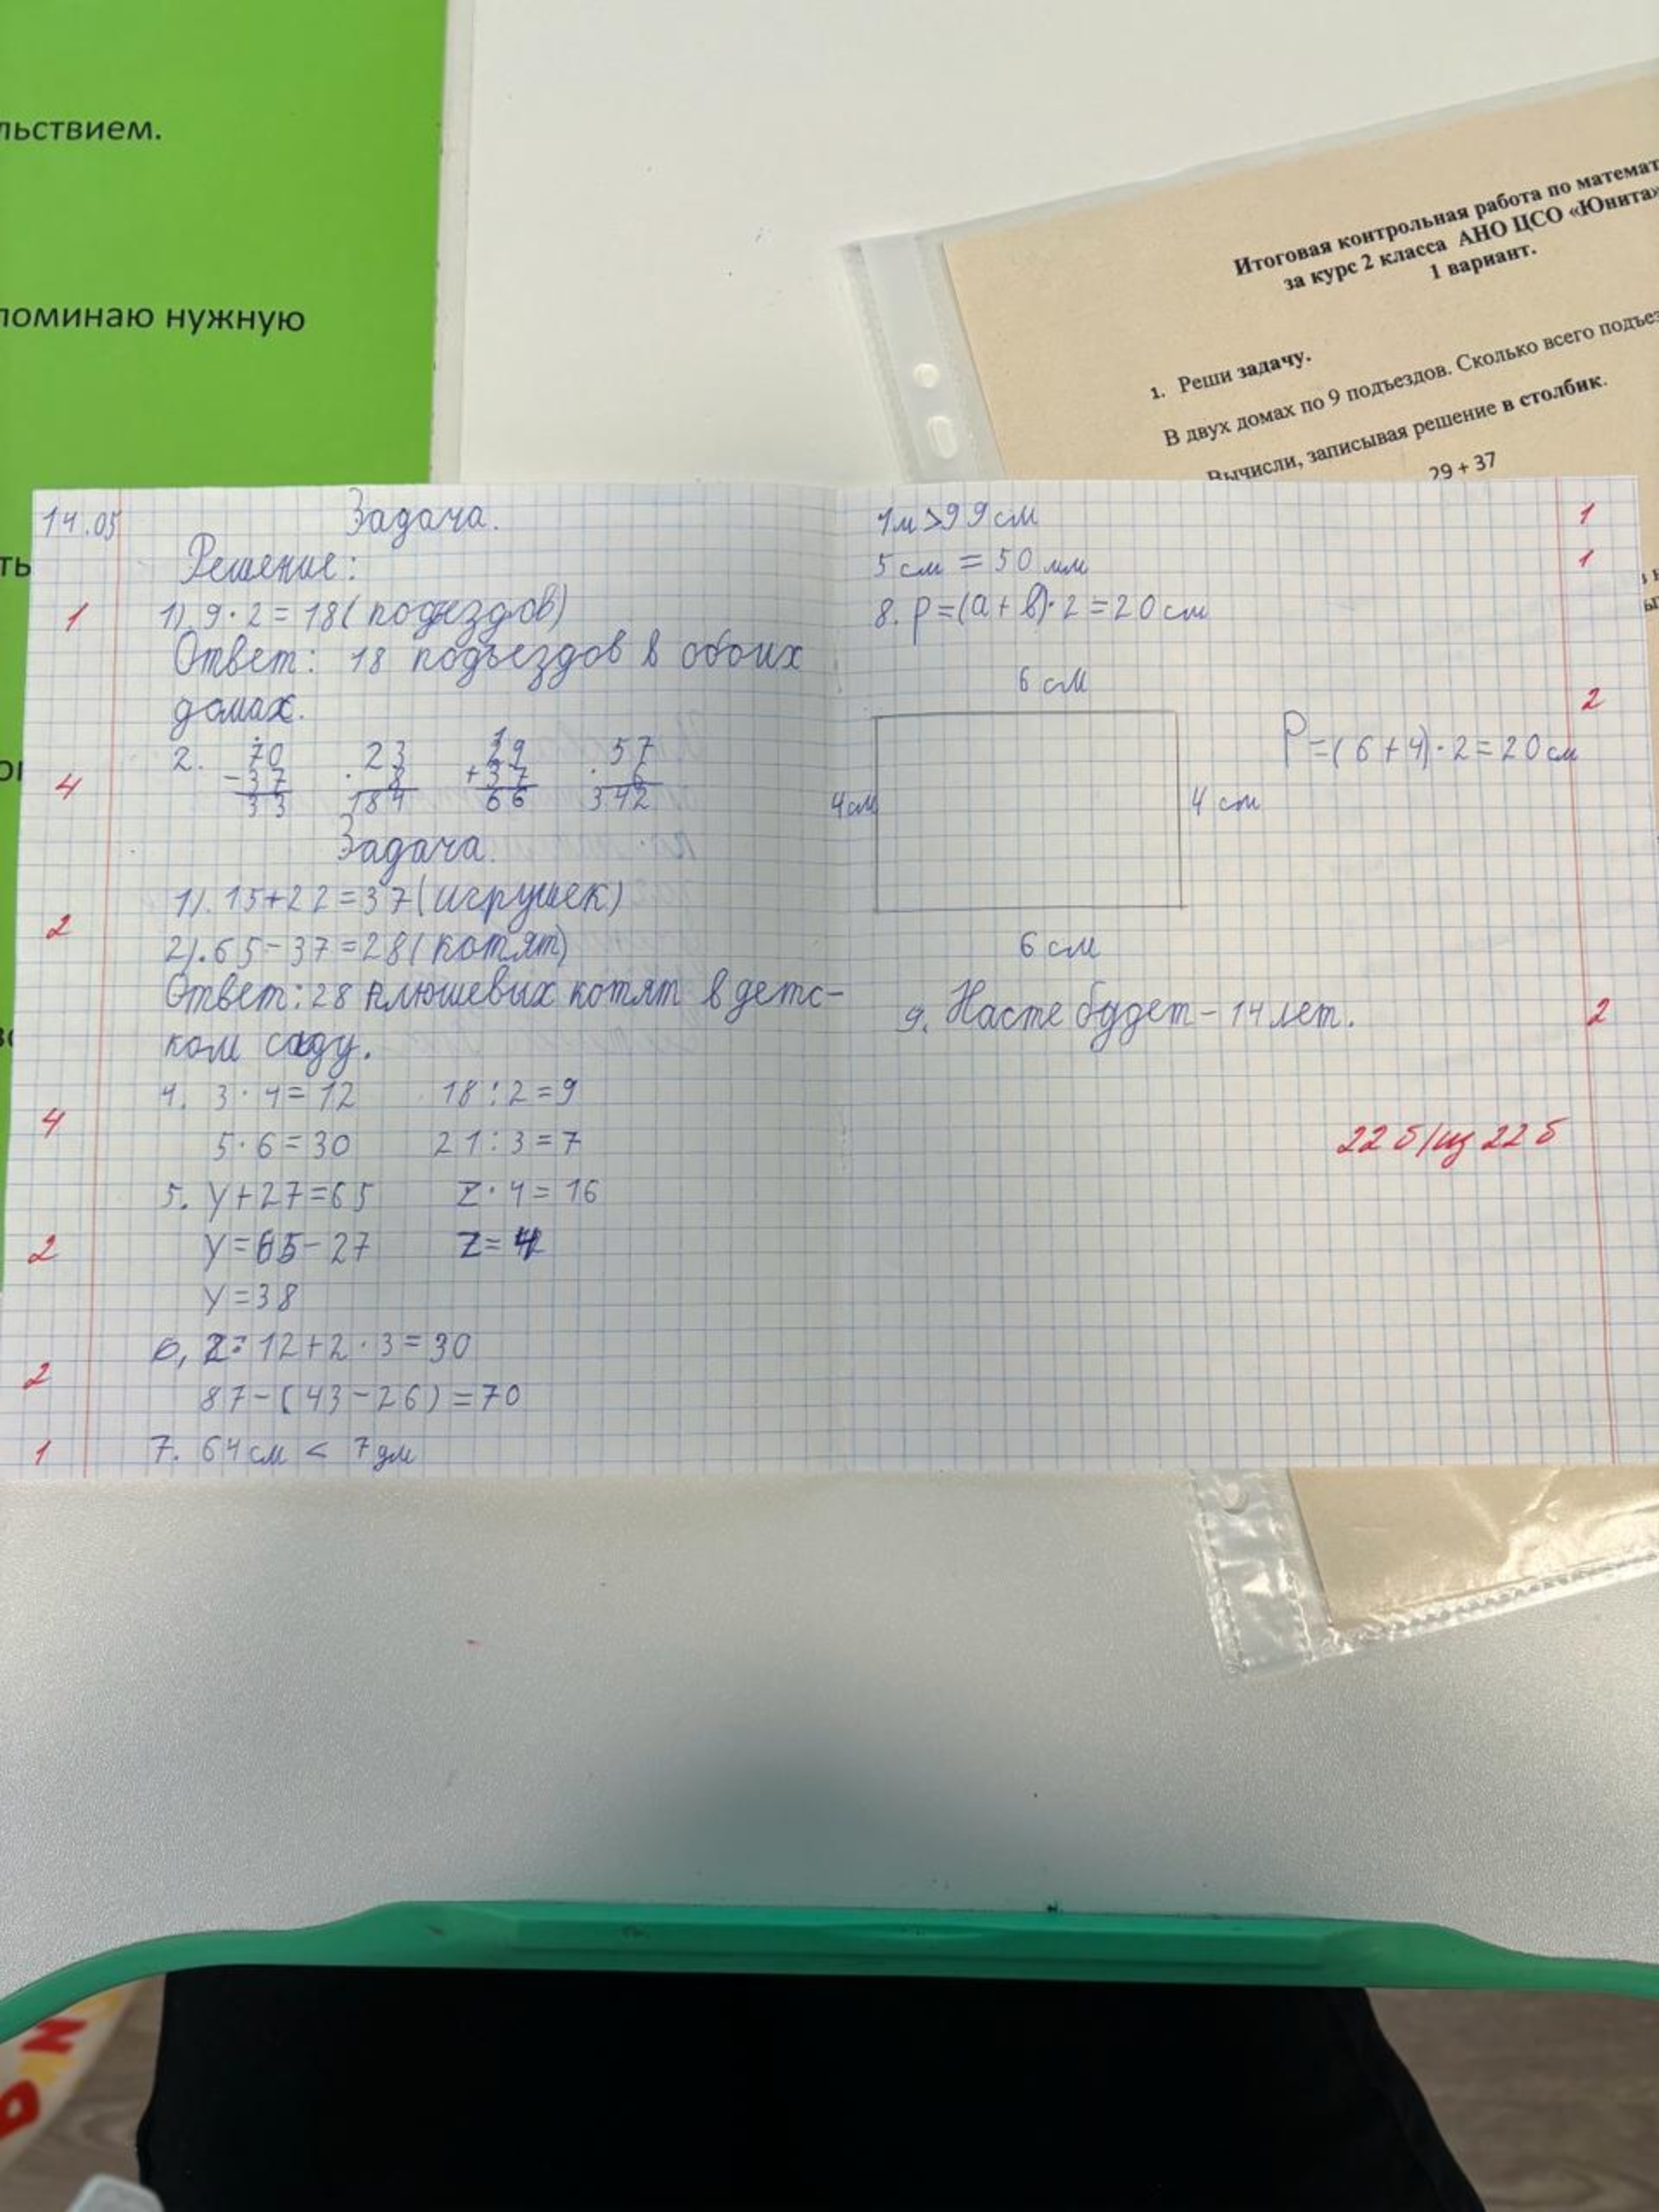 льствием.
поминаю нужную
ть
Итоговая контрольная работа по математ
за курс 2 класса АНО ЦСО «Юнита»
1 вариант.
1. Реши задачу.
В двух домах по 9 подъездов. Сколько всего подъез
Вычисли, записывая решение в столбик.
29 + 37
14.05 Задача.
Решение:
1 1). 9 · 2 = 18 (подъездов)
Ответ: 18 подъездов в обоих
домах.
2. 70 23 1 29 57
- 37 · 8 + 37 · 6
4 33 184 66 342
Задача.
1). 15+22=37 (игрушек)
2 2). 65-37=28 (котят)
Ответ: 28 плюшевых котят в детс-
ком саду.
4. 3 · 4 = 12 18 : 2 = 9
4 5 · 6 = 30 21 : 3 = 7
5. y+27=65 z · 4 = 16
2 y=65-27 z= 4
y=38
6, 2 12+2 · 3 = 30
2 87-(43-26)=70
1 7. 64 см < 7 дм
1м > 99 см 1
5 см = 50 мм 1
8. P=(a+b)·2=20 см
6 см
2
P=(6+4)·2=20 см
4 см 4 см
6 см
9. Насте будет - 14 лет. 2
22 б/из 22 б